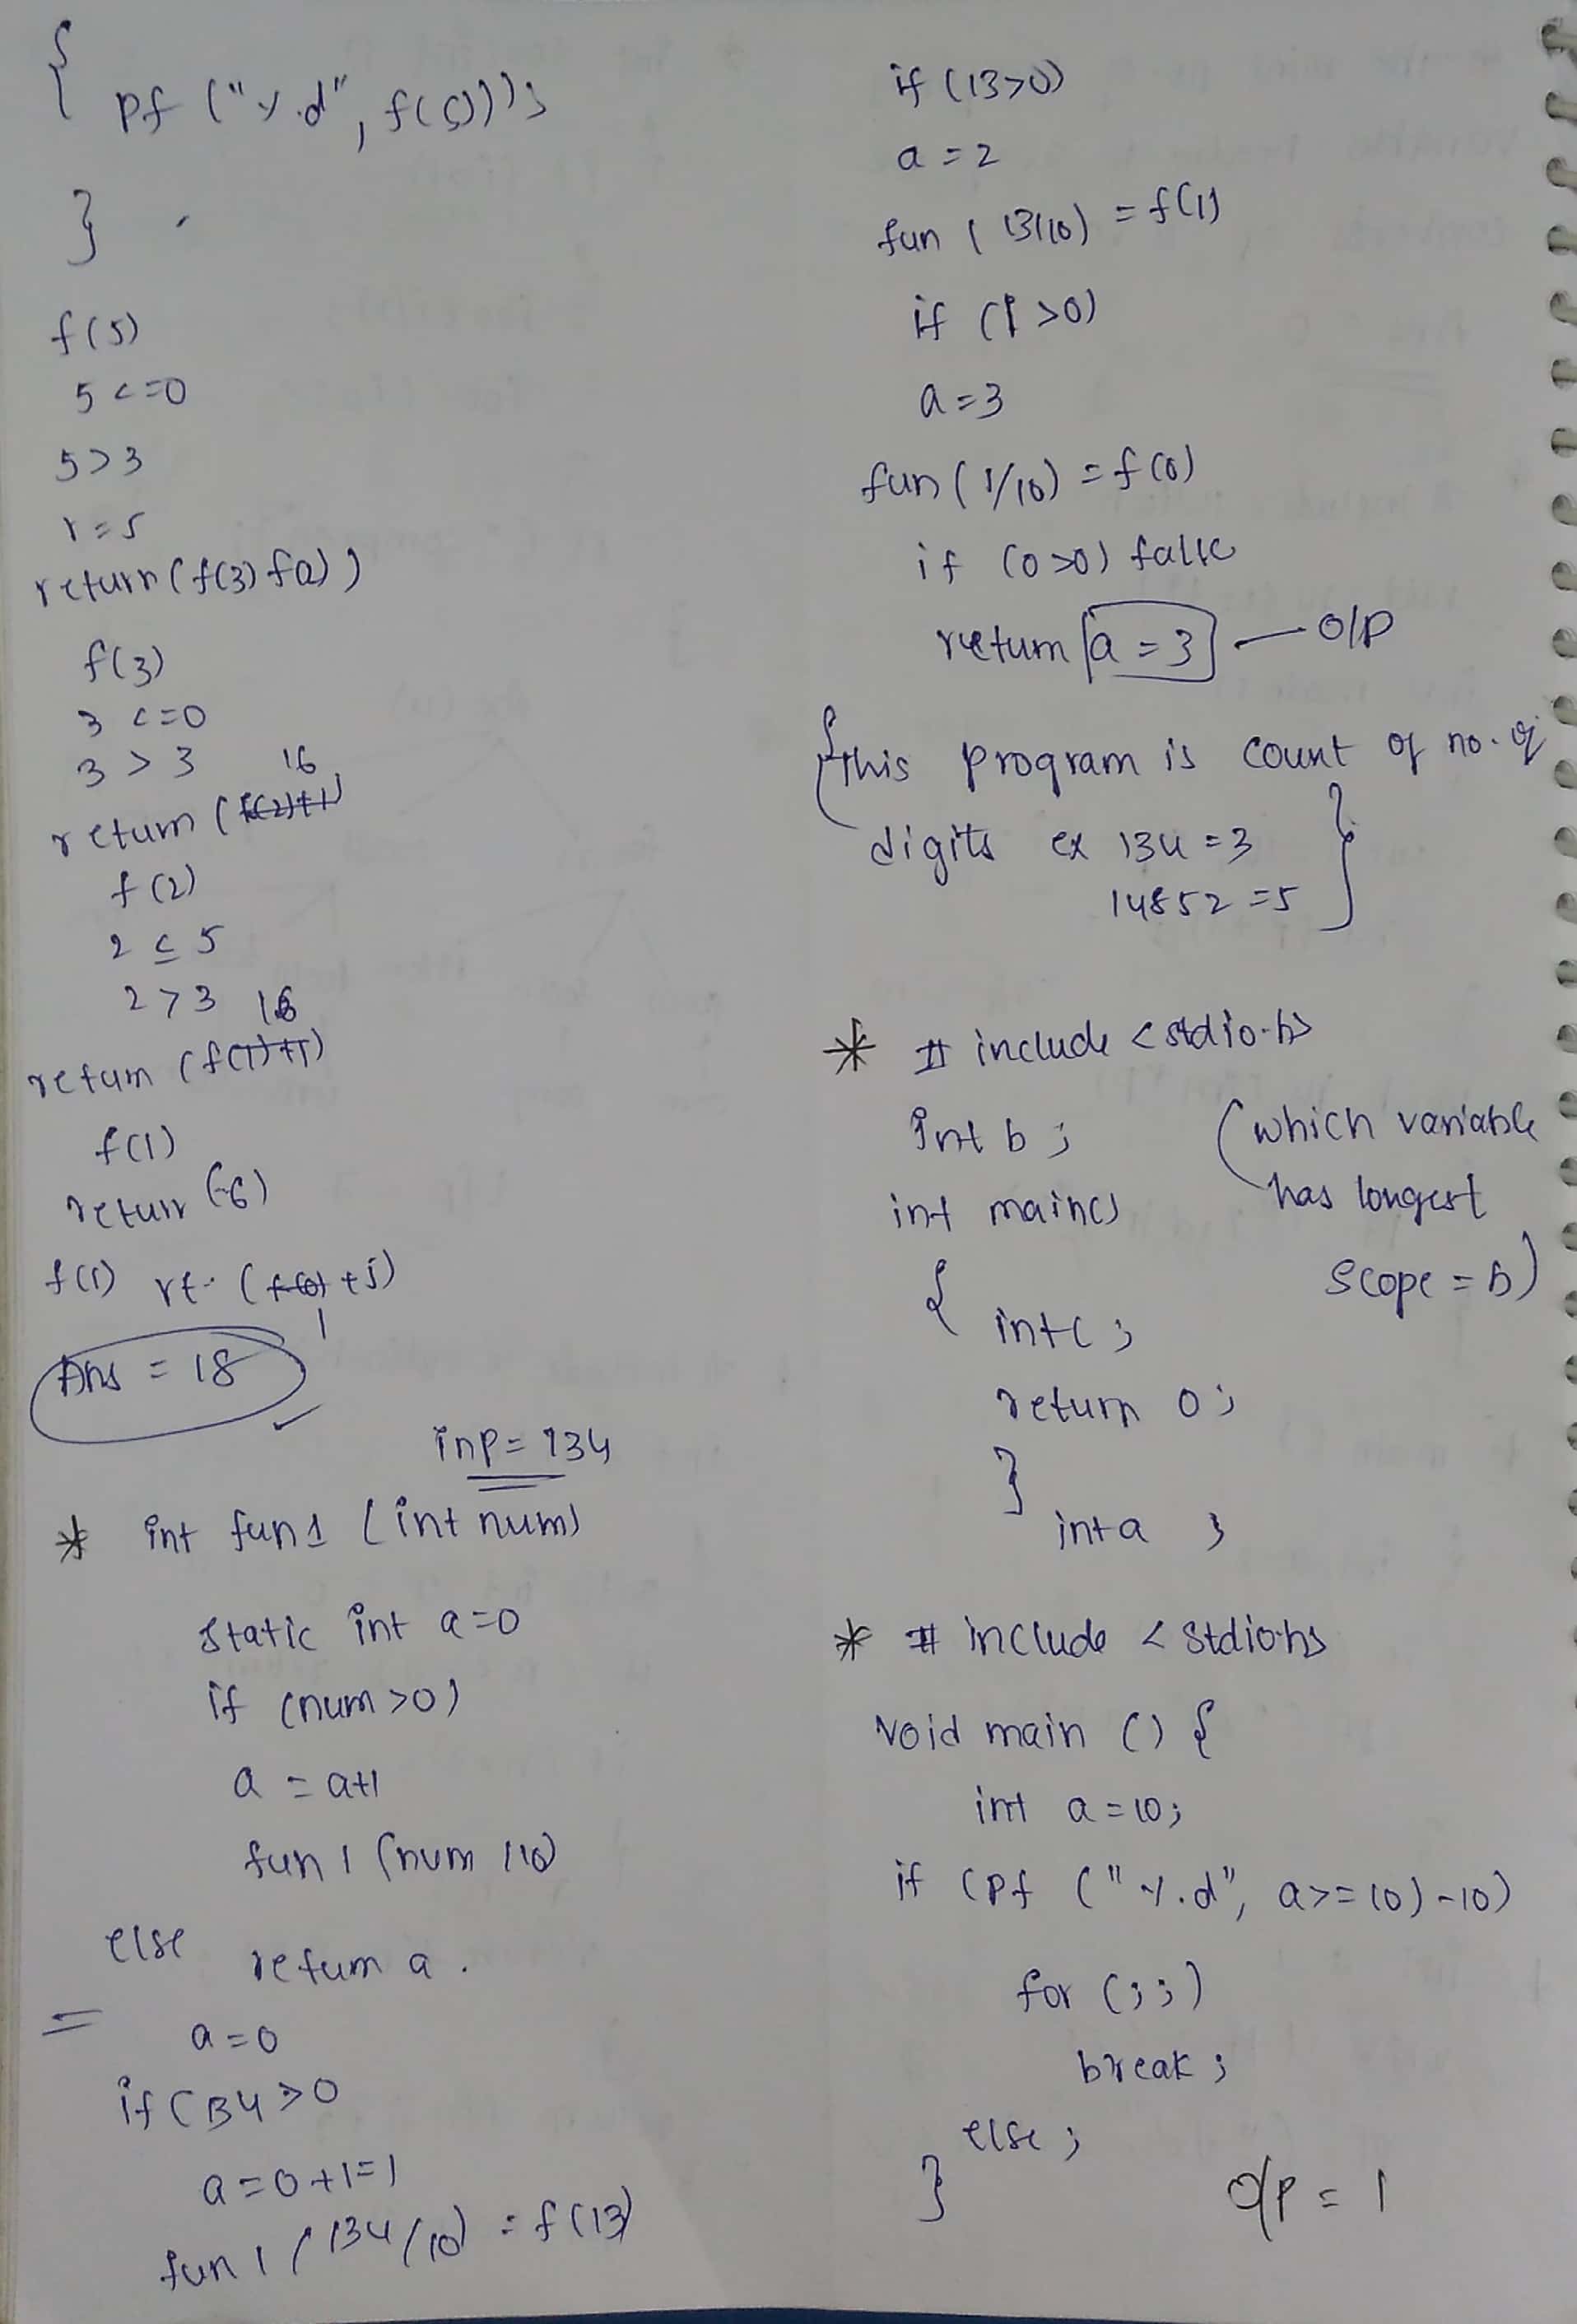 {
pf ("%d", f(5));
}
f(5)
5 <=0
5>3
r=5
return (f(3) f(2))
f(3)
3 <=0
3 > 3 16
return (f(2)+1)
f(2)
2 ≤ 5
2 > 3 16
return (f(1)+1)
f(1)
return
f(1) rt. (f(0)+5)
1
Ans = 18
inp = 134
* int fun1 (int num)
static int a=0
if (num >0)
a = a+1
fun1 (num /10)
else
return a.
a=0
if (134 >0
a=0+1=1
fun1 (134/10) = f(13)
if (13>0)
a = 2
fun (13/10) = f(1)
if (1 >0)
a=3
fun (1/10) = f(0)
if (0>0) false
return a = 3 — o/p
{this program is count of no. of
digits ex 134 = 3
14852 = 5 }
* # include <stdio.h>
int b; (which variable
int main() has longest
{ scope = b)
int c;
return 0;
}
int a ;
* # include <stdio.h>
void main () {
int a=10;
if (pf ("%d", a>=10)-10)
for (;;)
break;
else;
}
o/p = 1